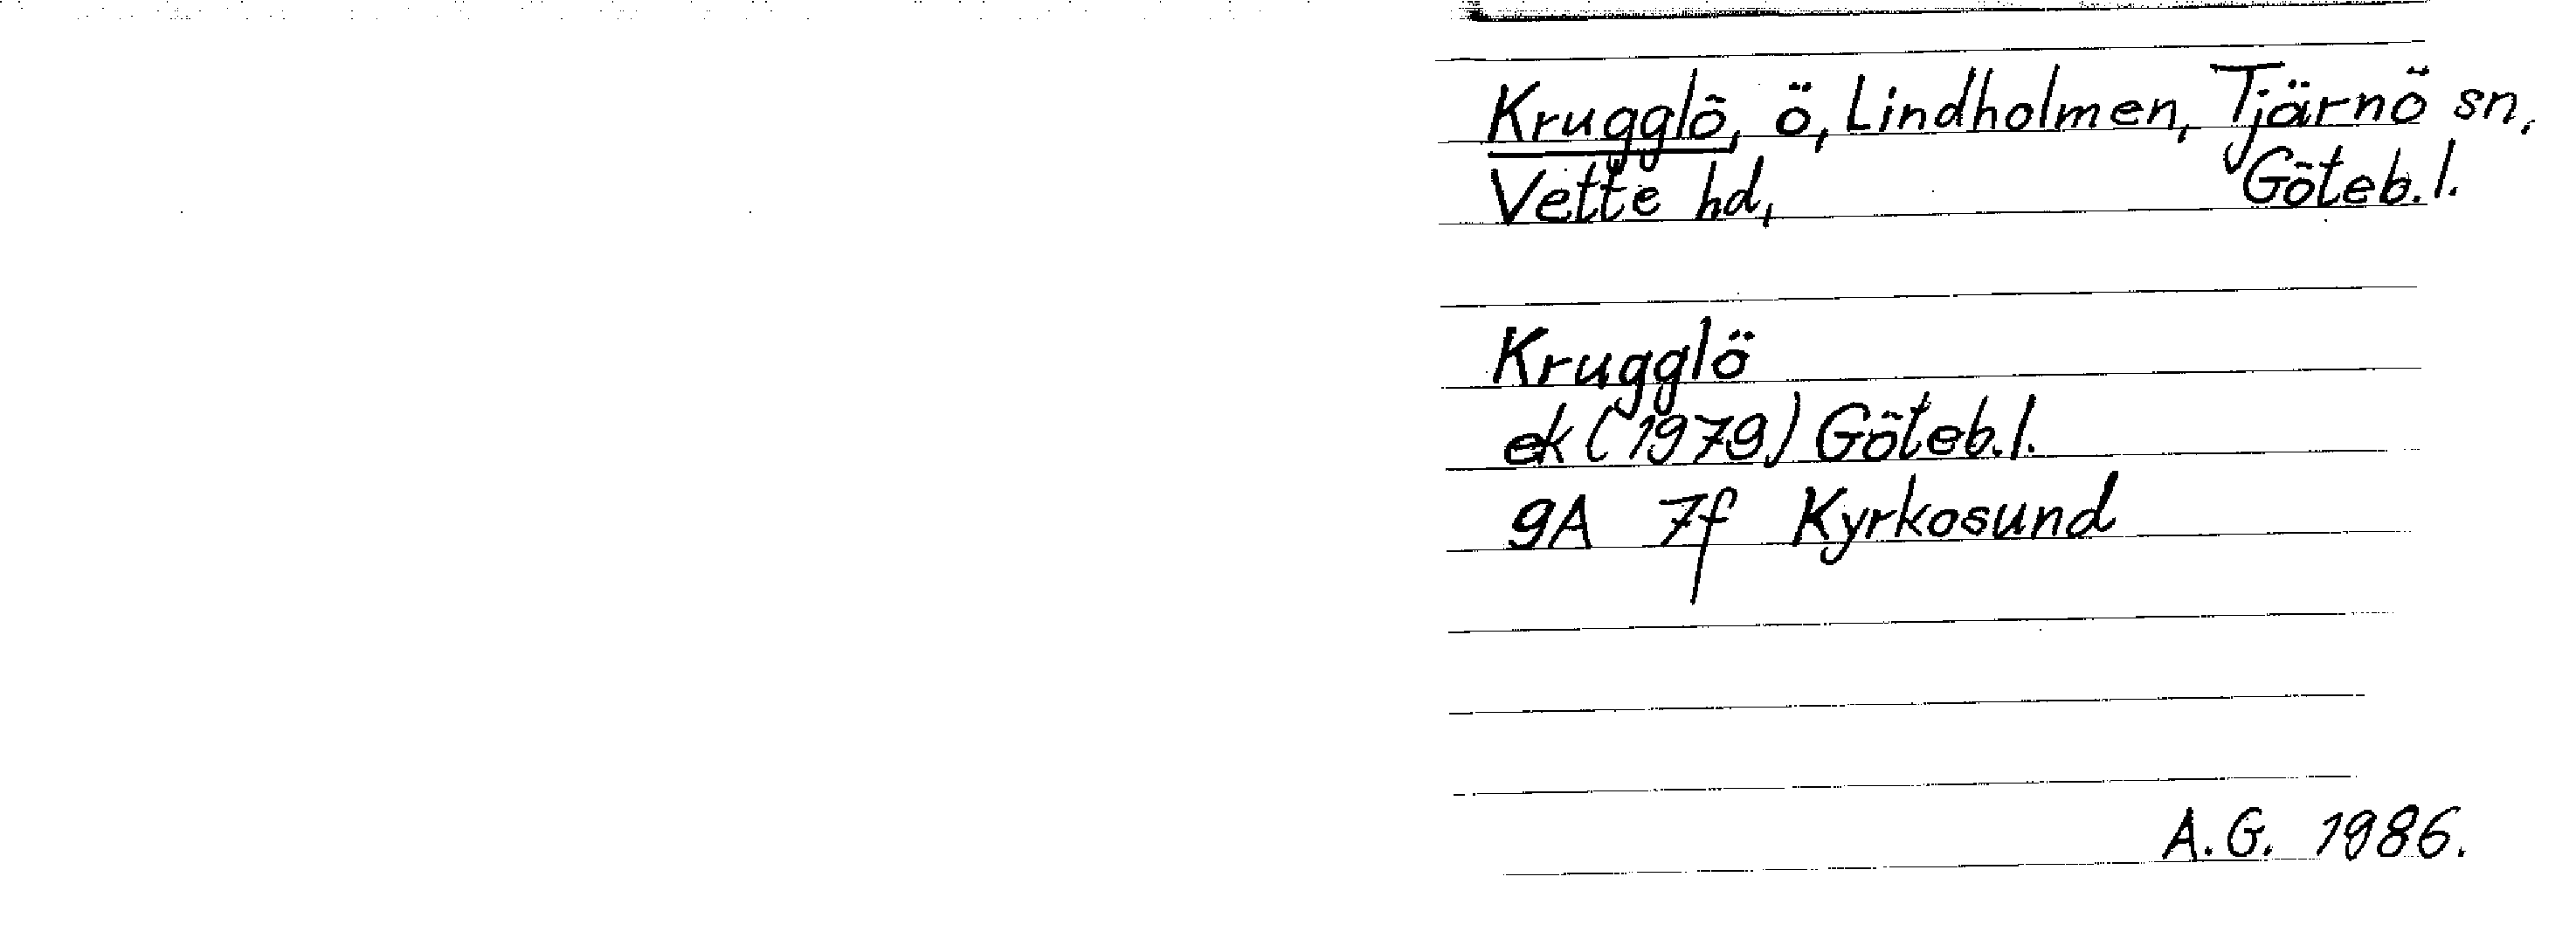 Krugglö, ö, Lindholmen, Tjärnö sn,
Vette hd, Göteb. l.
Krugglö
ek (1979) Göteb. l.
9A 7f Kyrkosund
A. G. 1986.